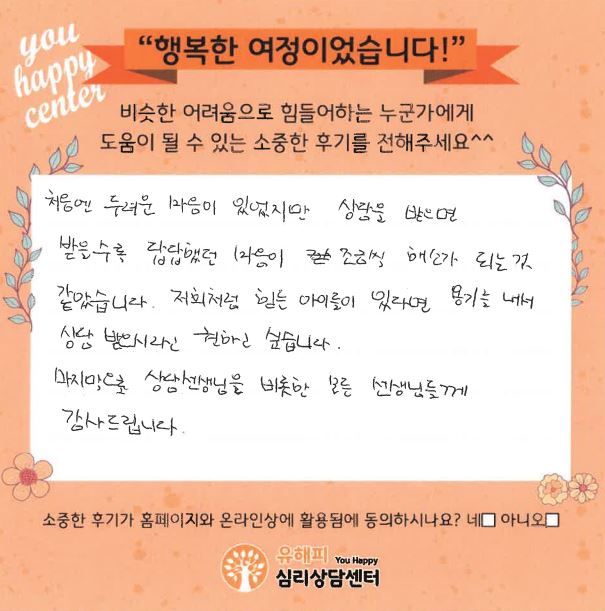 you
happy
center
“행복한 여정이었습니다!”
비슷한 어려움으로 힘들어하는 누군가에게
도움이 될 수 있는 소중한 후기를 전해주세요^^
처음엔 두려운 마음이 있었지만 상담을 받으면
받을수록 답답했던 마음이 조금씩 해소가 되는것
같았습니다. 저희처럼 힘든 아이들이 있다면 용기를 내서
상담 받으시라고 전하고 싶습니다.
마지막으로 상담선생님을 비롯한 모든 선생님들께
감사드립니다.
소중한 후기가 홈페이지와 온라인상에 활용됨에 동의하시나요? 네 아니오
유해피 You Happy
심리상담센터